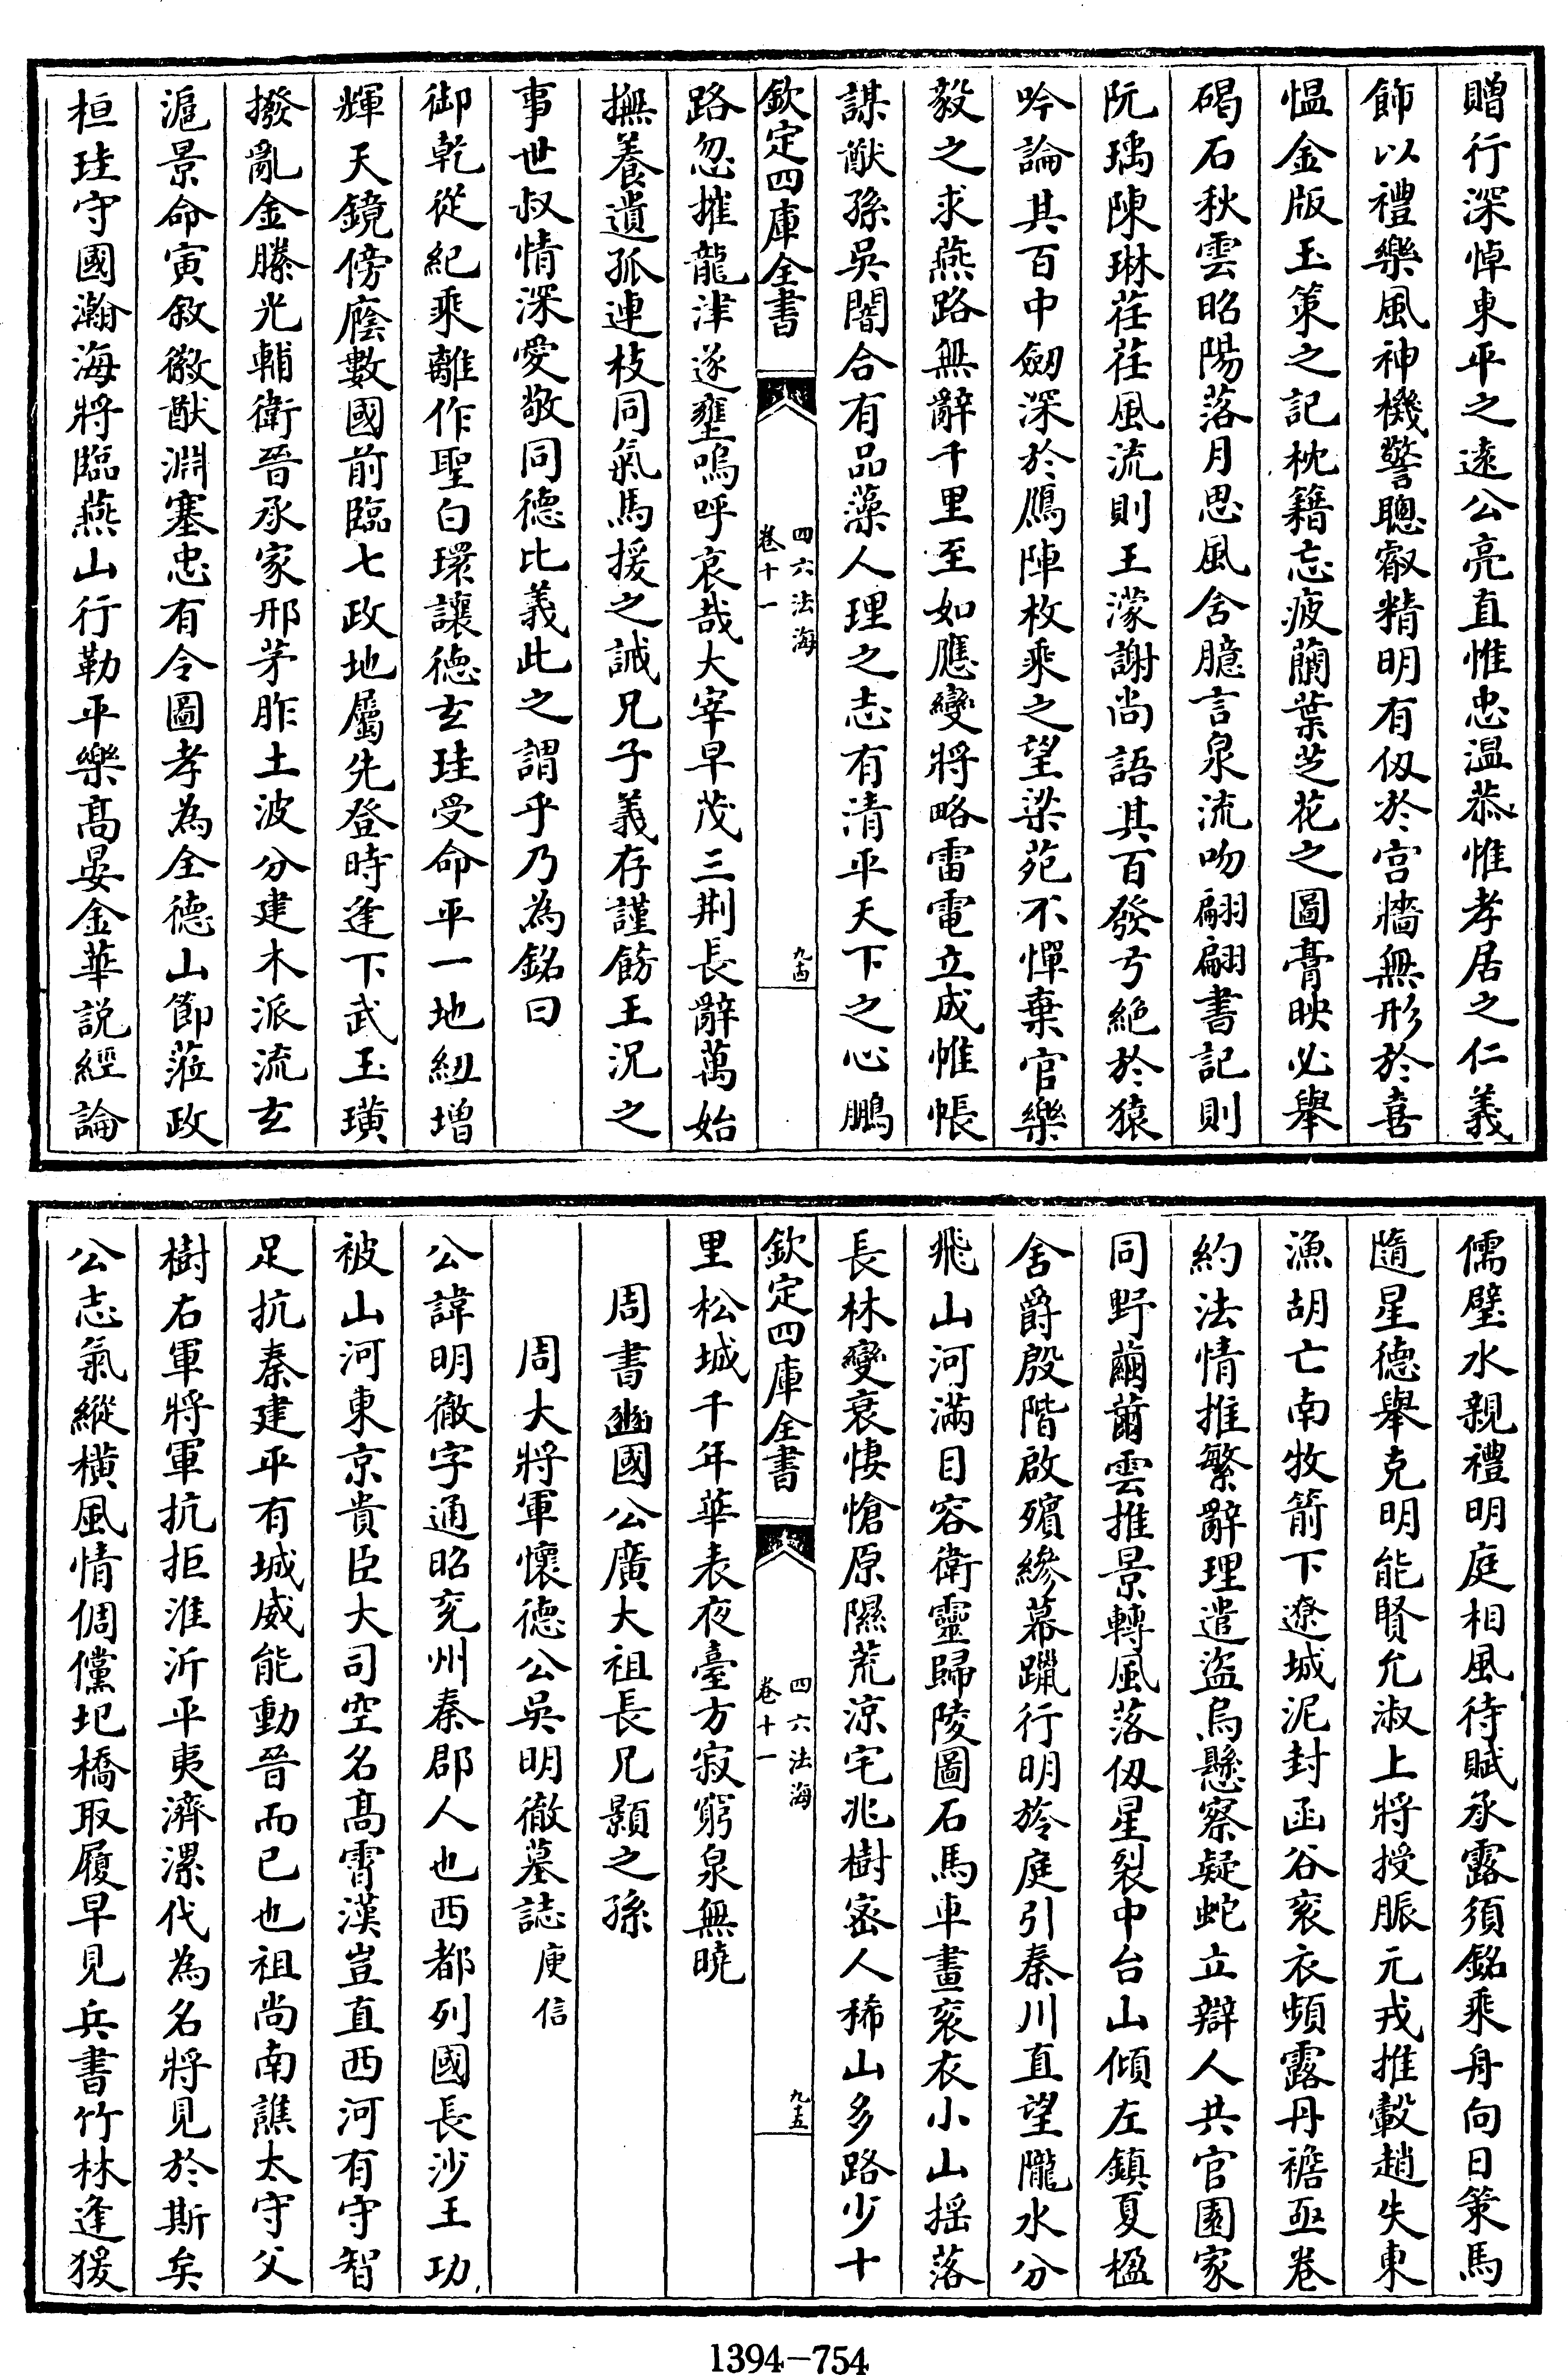 贈行深悼東平之遠公亮直惟忠温恭惟孝居之仁義
飾以禮樂風神機警聰叡精明有仭於宫牆無形於喜
愠金版玉策之記枕籍忘疲蘭葉芝花之圖膏映必舉
碣石秋雲昭陽落月思風含臆言泉流吻翩翩書記則
阮瑀陳琳荏荏風流則王濛謝尚語其百發弓絶於猿
吟論其百中劒深於鴈陣枚乘之望梁苑不憚棄官樂
毅之求燕路無辭千里至如應變將略雷電立成帷帳
謀猷孫吳闇合有品藻人理之志有清平天下之心鵬
欽定四庫全書
四六法海
卷十一
九十四
路忽摧龍津遂壅嗚呼哀哉大宰早茂三荆長辭萬始
撫養遺孤連枝同氣馬援之誡兄子義存謹飭王況之
事世叔情深愛敬同德比義此之謂乎乃為銘曰
御乾從紀乘離作聖白環讓德玄珪受命平一地紐增
輝天鏡傍廕數國前臨七政地屬先登時逢下武玉璜
撥亂金縢光輔衛晉承家邢茅胙土波分建木派流玄
滬景命寅敘徽猷淵塞忠有令圖孝為全德山節蒞政
桓珪守國瀚海將臨燕山行勒平樂髙晏金華説經論
儒璧水親禮明庭相風待賦承露須銘乘舟向日策馬
隨星德舉克明能賢允淑上將授脤元戎推轂趙失東
漁胡亡南牧箭下遼城泥封函谷衮衣頻露丹襜亟卷
約法情推繁辭理遣盜烏懸察疑蛇立辯人共官園家
同野繭蕭雲推景轉風落仭星裂中台山傾左鎮夏楹
舍爵殷階啟殯縿幕躐行明旍庭引秦川直望隴水分
飛山河滿目容衛靈歸陵圖石馬車畫衮衣小山揺落
長林變衰悽愴原隰荒涼宅兆樹密人稀山多路少十
欽定四庫全書
四六法海
卷十一
九十五
里松城千年華表夜臺方寂窮泉無曉
周書豳國公廣大祖長兄顥之孫
周大將軍懷德公吳明徹墓誌 庾信
公諱明徹字通昭兖州秦郡人也西都列國長沙王功
被山河東京貴臣大司空名髙霄漢豈直西河有守智
足抗秦建平有城威能動晉而已也祖尚南譙太守父
樹右軍將軍抗拒淮沂平夷濟漯代為名將見於斯矣
公志氣縱橫風情倜儻圯橋取履早見兵書竹林逢猨
1394-754